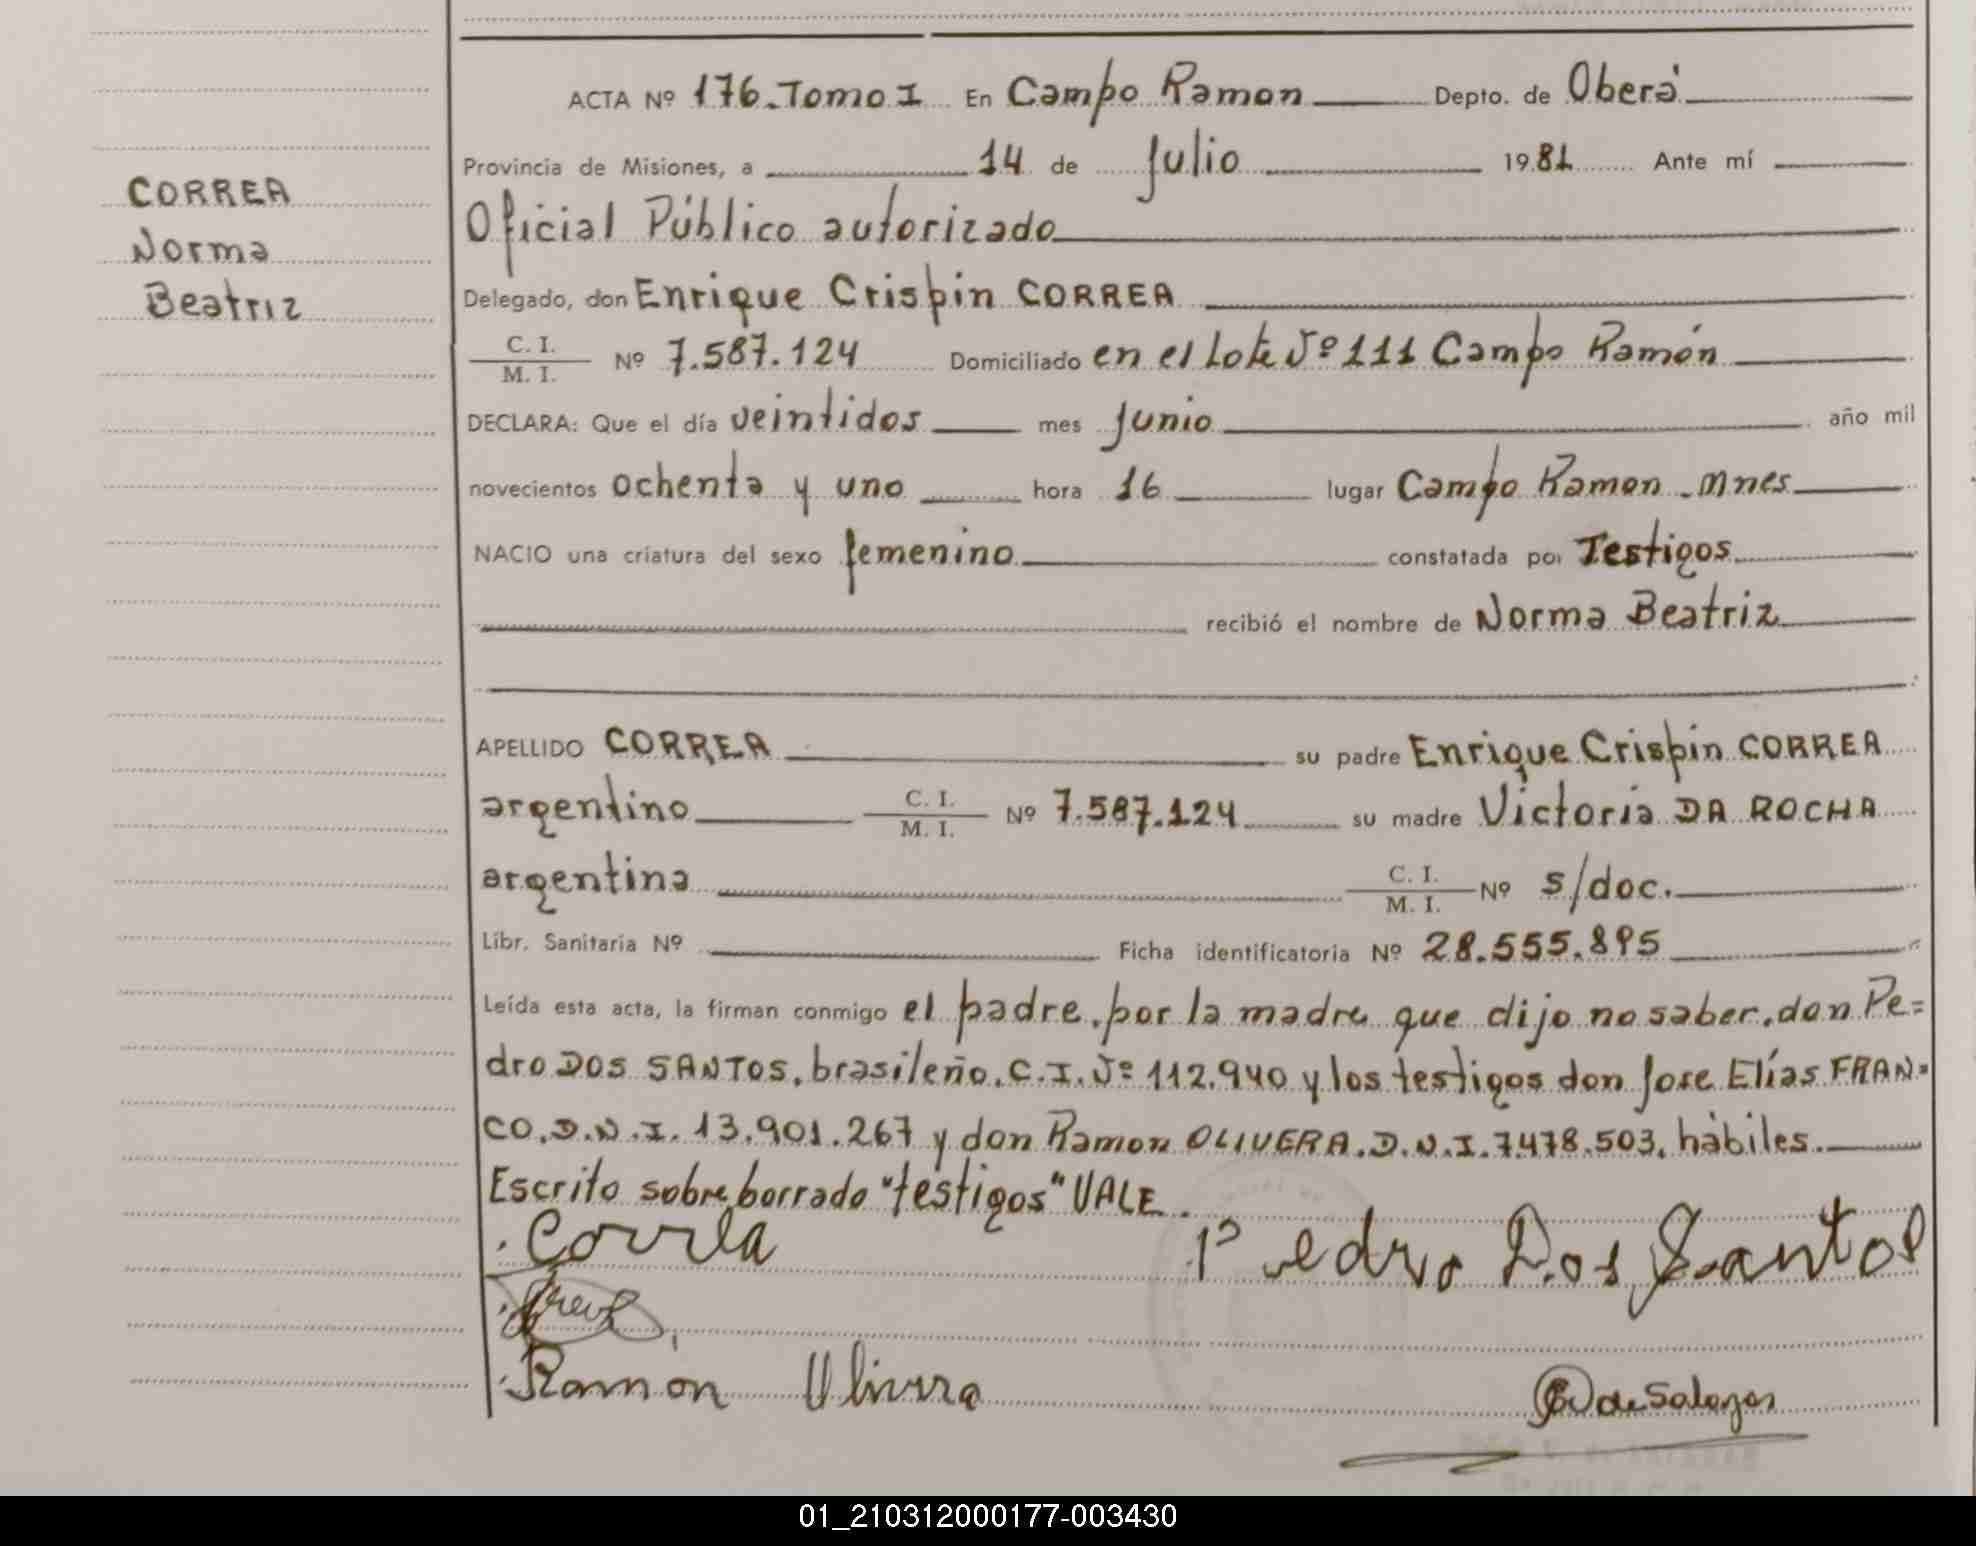 CORREA
Norma
Beatriz
ACTA Nº 176. Tomo I En Campo Ramon Depto. de Oberá
Provincia de Misiones, a 14 de Julio 1981 Ante mí
Oficial Público autorizado
Delegado, don Enrique Crispin CORREA
C. I.
M. I. Nº 7.587.124 Domiciliado en el Lote Nº 111 Campo Ramón
DECLARA: Que el día veintidos mes Junio año mil
novecientos ochenta y uno hora 16 lugar Campo Ramon - Mnes
NACIO una criatura del sexo femenino constatada por Testigos
recibió el nombre de Norma Beatriz
APELLIDO CORREA su padre Enrique Crispin CORREA
argentino C. I.
M. I. Nº 7.587.124 su madre Victoria DA ROCHA
argentina C. I.
M. I. Nº s/doc.
Libr. Sanitaria Nº Ficha identificatoria Nº 28.555.895
Leída esta acta, la firman conmigo el padre, por la madre que dijo no saber, don Pe=
dro DOS SANTOS, brasileño, C.I. Nº 112.940 y los testigos don Jose Elías FRAN=
CO, D.N.I. 13.901.267 y don Ramon OLIVERA, D.N.I. 7.478.503, hábiles.
Escrito sobre borrado "testigos" VALE.
Correa
Pedro Dos Santos
Ramon Olivera
de Salazar
01_210312000177-003430